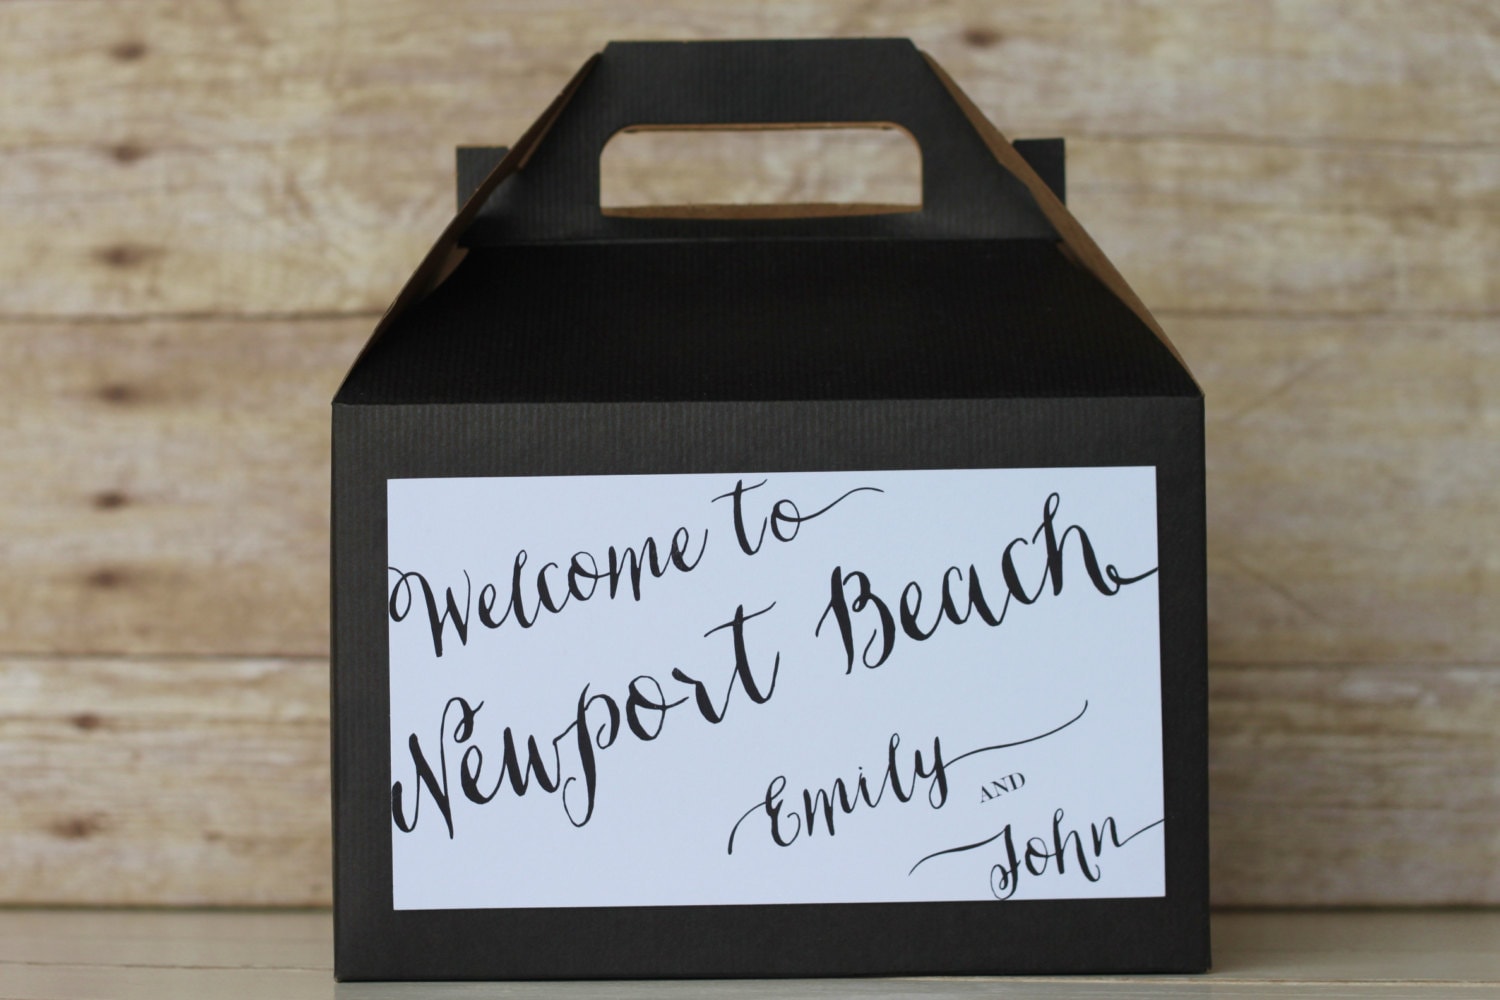 Welcome to
Newport Beach
Emily AND
John